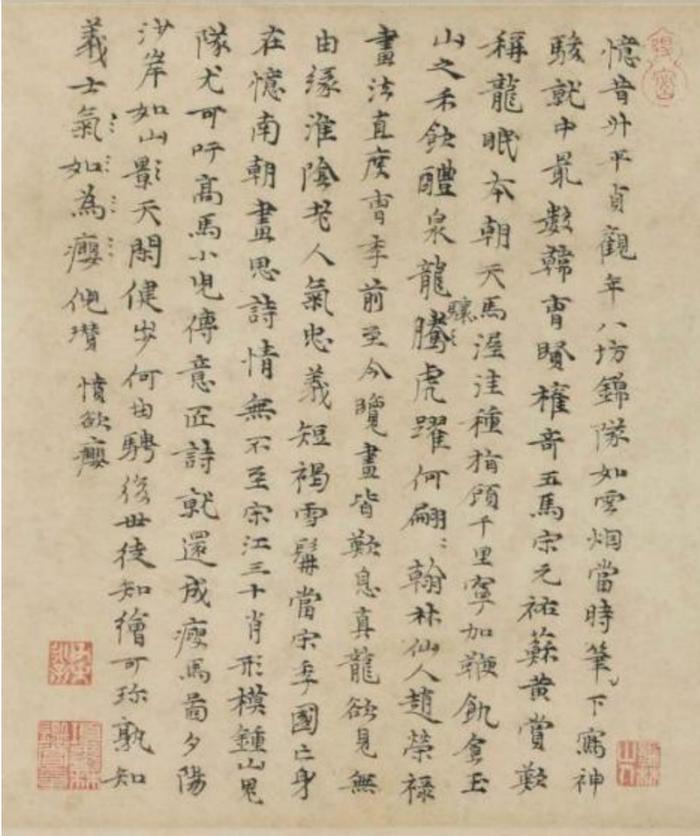 憶昔升平貞觀年八坊錦隊如雲烟當時筆下寫神
駿就中最數韓曹賢權奇五馬宋元祐蘇黃賞歎
稱龍眠本朝天馬渥洼種指顧千里寧加鞭飢食玉
山之禾飲醴泉龍騰驤虎躍何翩〻翰林仙人趙榮祿
畫法直度曹李前至今覽畫皆歎息真龍欲見無
由緣淮陰老人氣忠義短褐雪髯當宋季國亡身
在憶南朝畫思詩情無不至宋江三十肖形模鍾山鬼
隊尤可吁高馬小兒傳意匠詩就還成瘦馬圖夕陽
沙岸如山影天閑健步何由騁後世徒知繪可珍孰知
義士氣如為癭倪瓚 憤欲癭